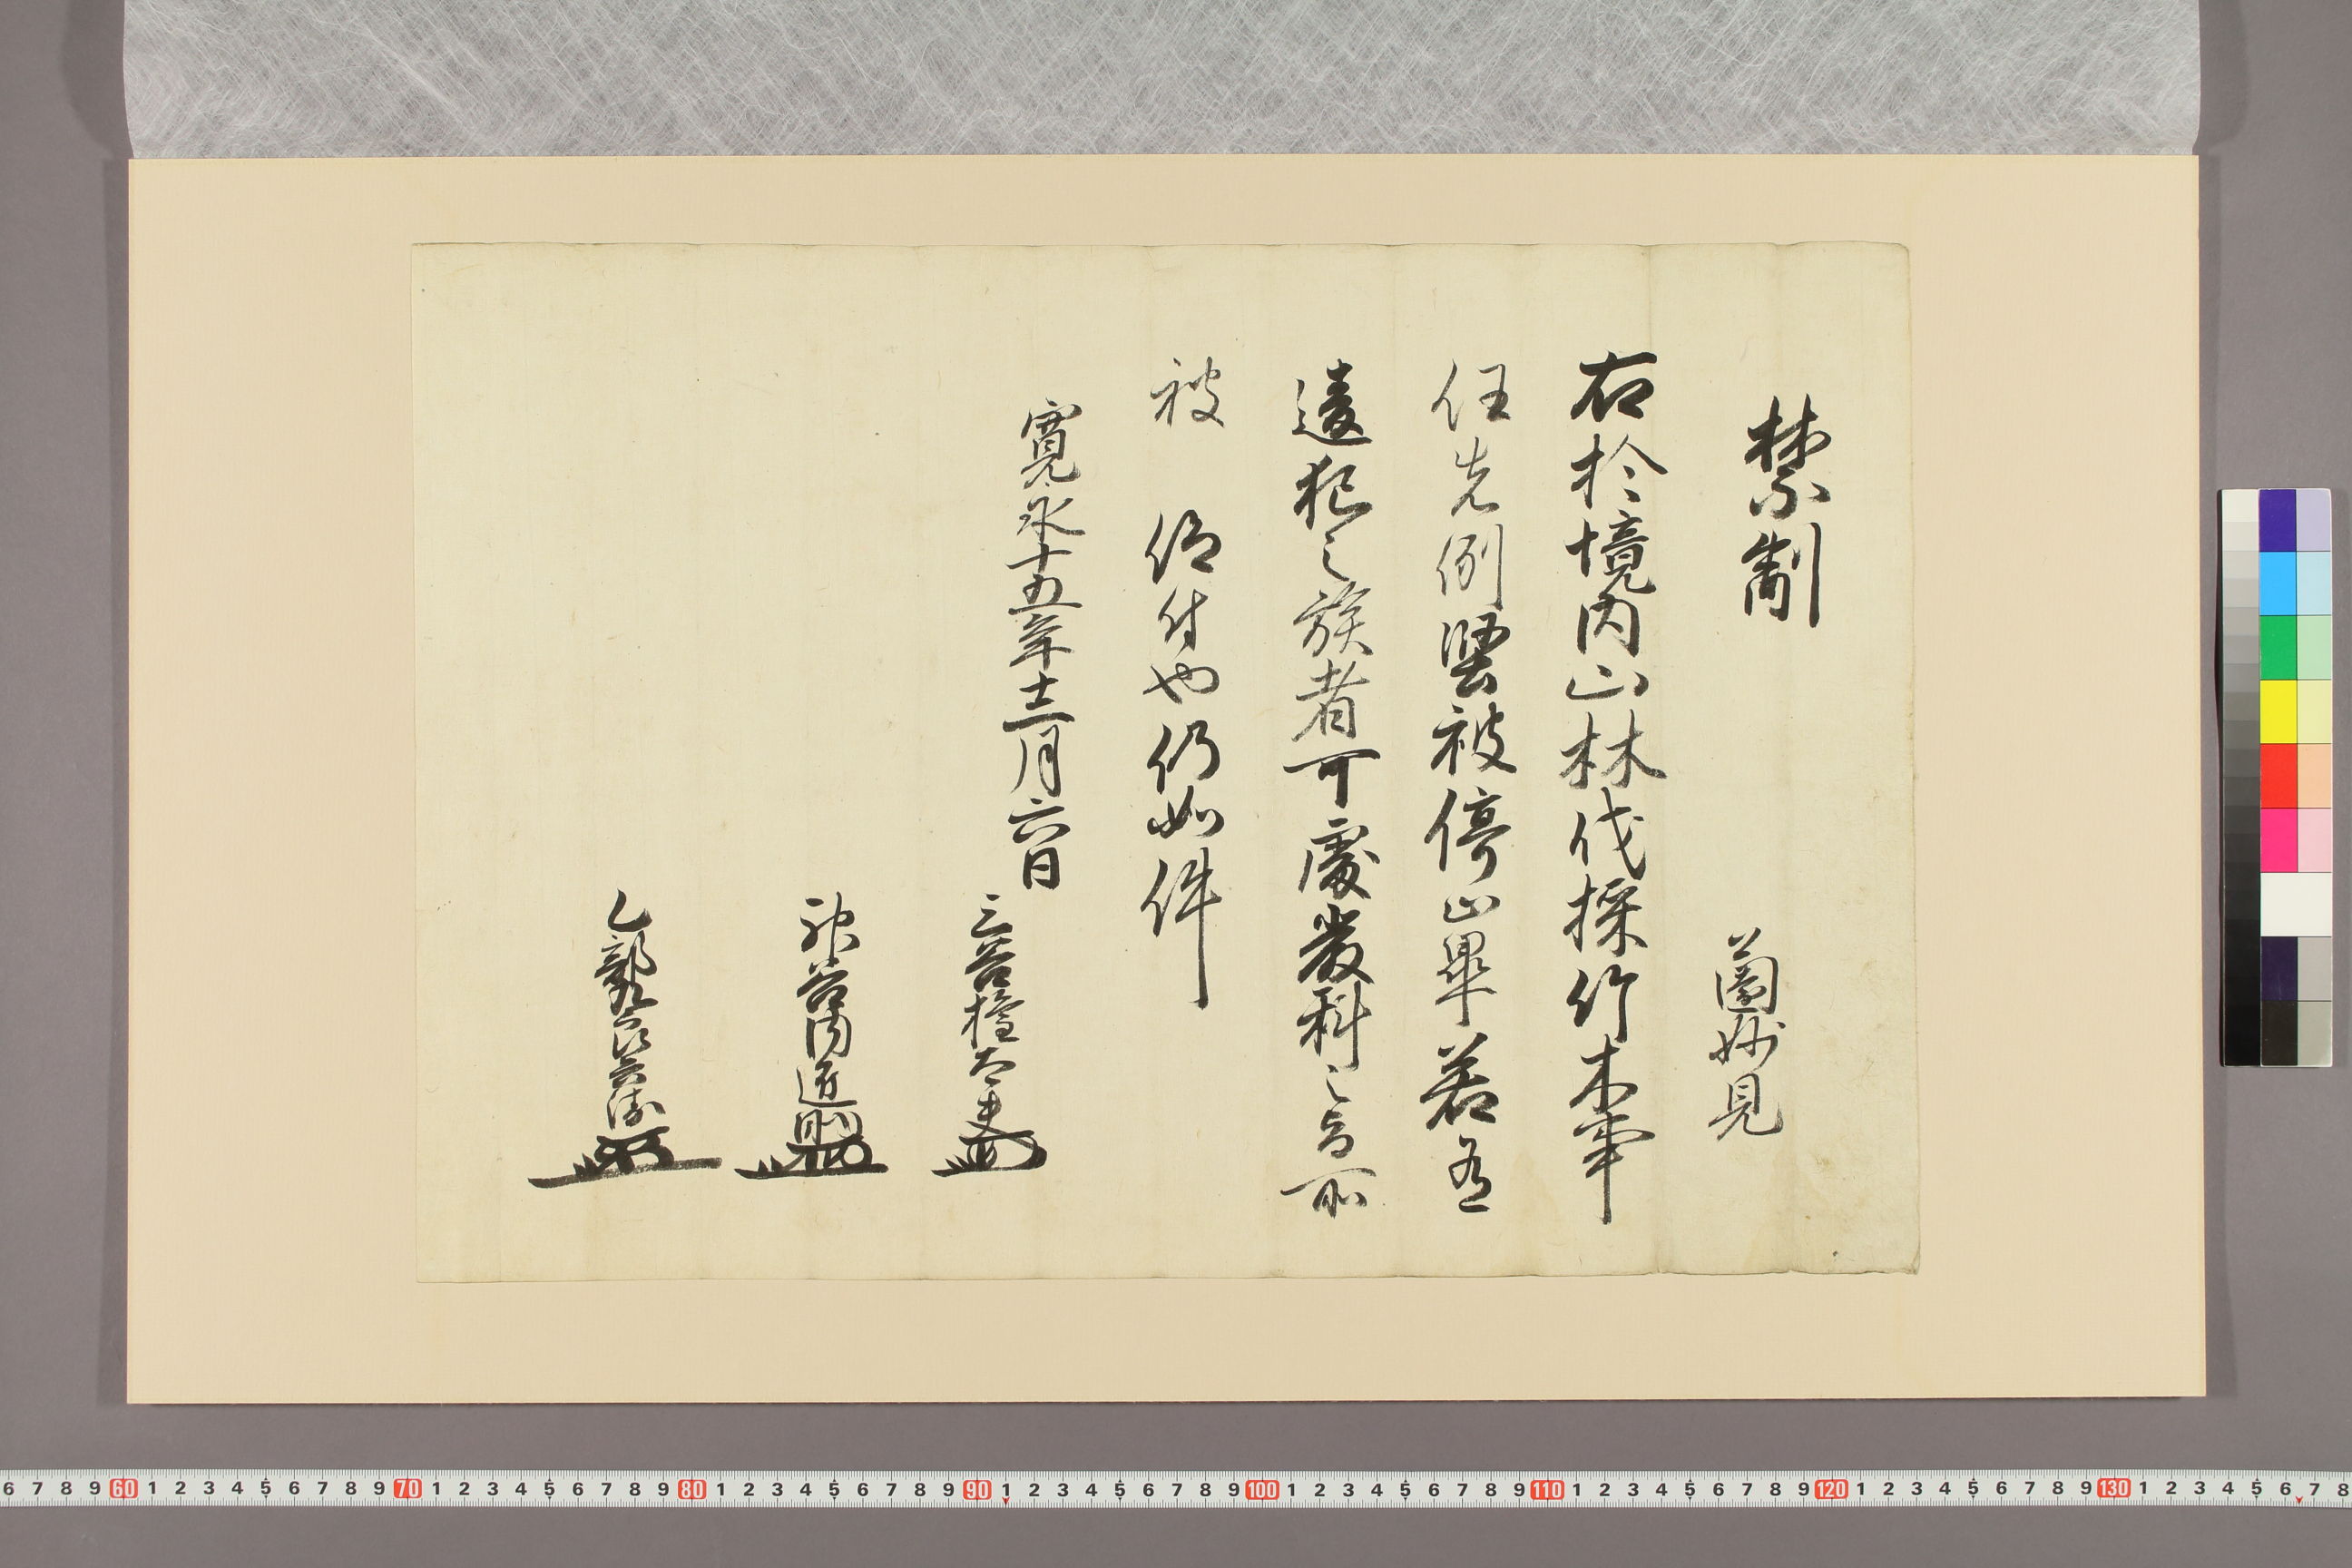 禁制
薗妙見
右於境内山林伐採竹木事
任先例堅被停止畢若有
違犯之族者可處嚴科之旨所
被 仰付也仍如件
寛永十五年十二月六日
三谷権大夫
神谷内匠助
乙部九郎兵衛
6 7 8 9 60 1 2 3 4 5 6 7 8 9 70 1 2 3 4 5 6 7 8 9 80 1 2 3 4 5 6 7 8 9 90 1 2 3 4 5 6 7 8 9 100 1 2 3 4 5 6 7 8 9 110 1 2 3 4 5 6 7 8 9 120 1 2 3 4 5 6 7 8 9 130 1 2 3 4 5 6 7 8